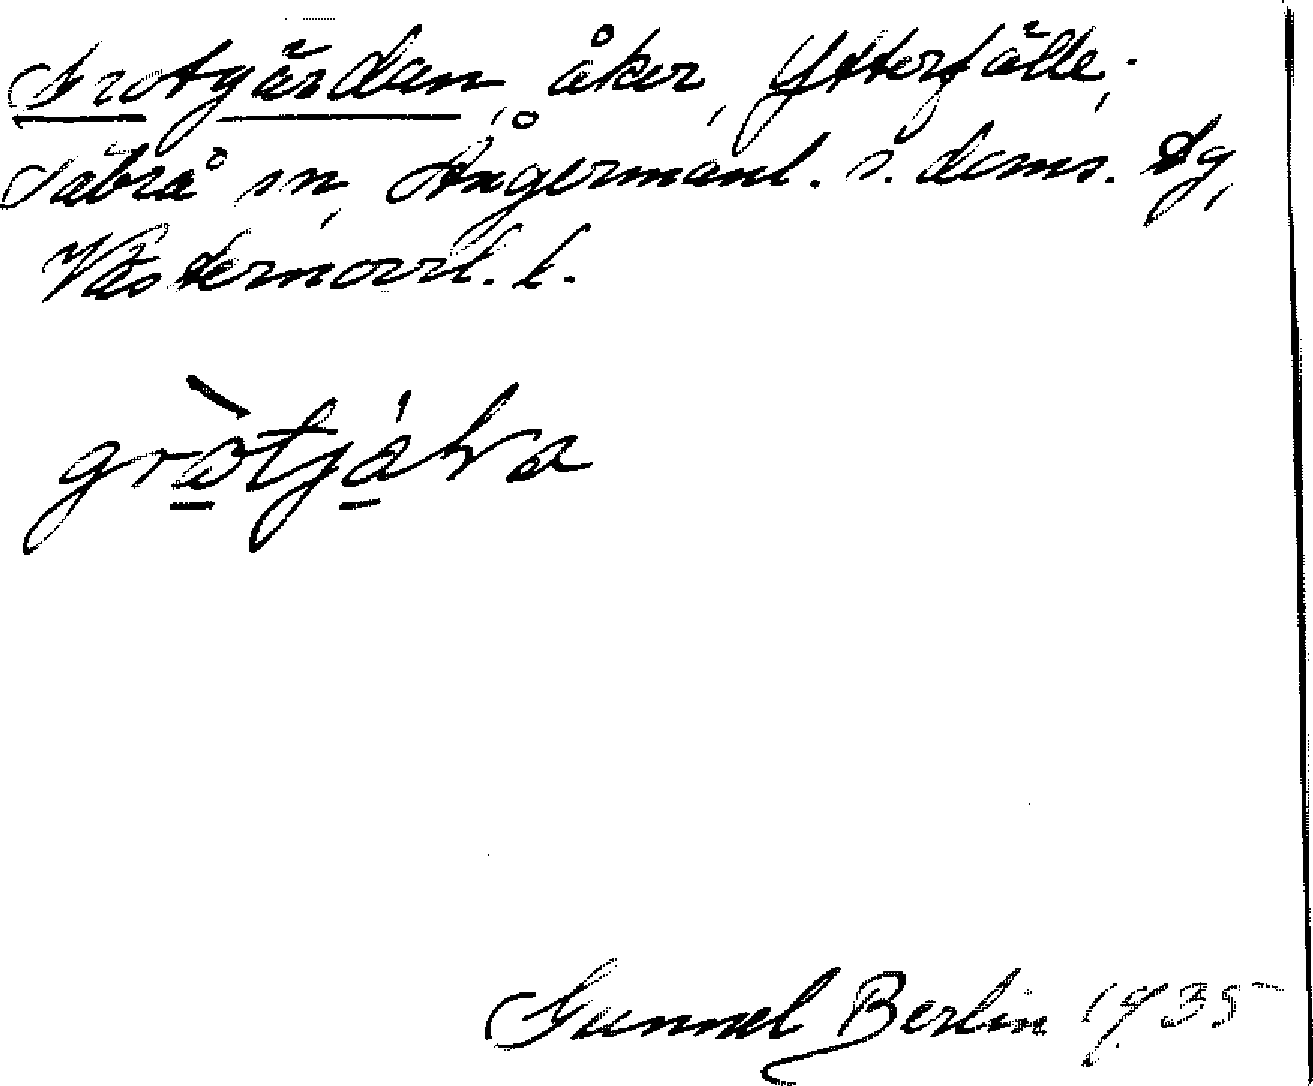 Grotgärdan, åker, Ytterfälle,
Säbrå sn, Ångermanl. s. doms. dg,
Västernorrl. l.
gròtjáḷva
Gunnel Berlin 1935